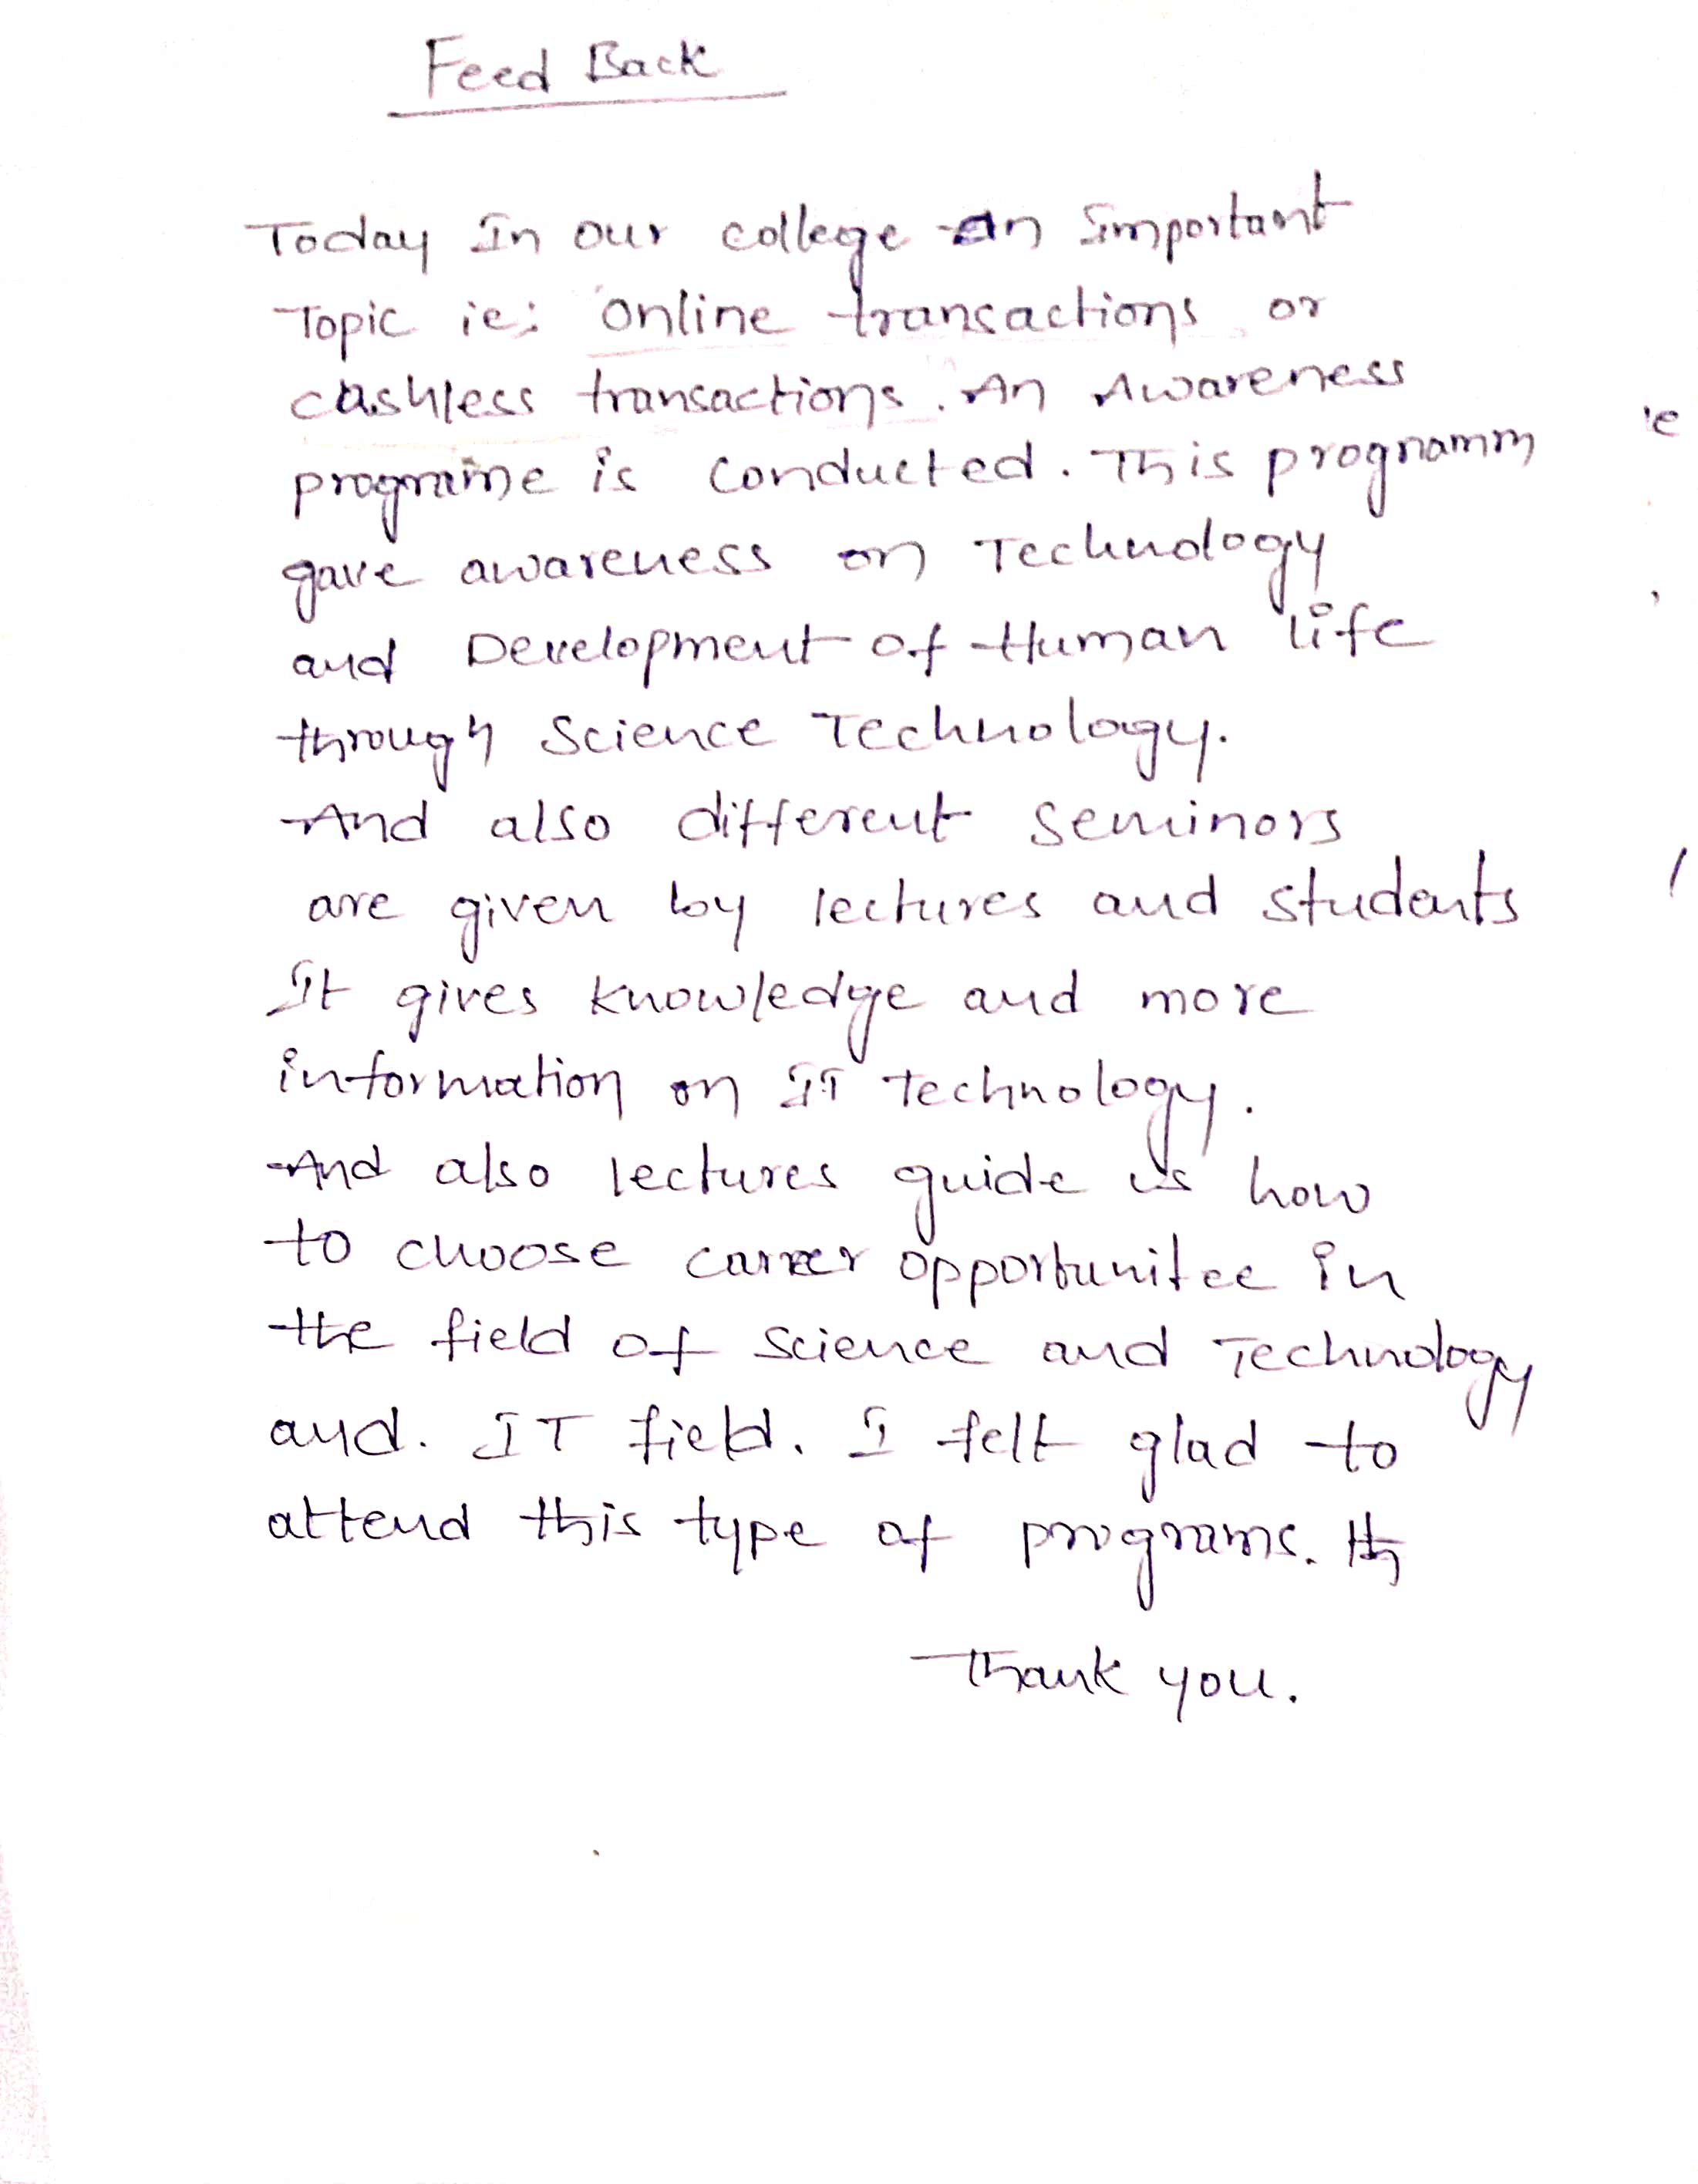 Feed Back
Today In our college An Important
Topic ie: Online transactions or
cashless transactions. An Awareness
programme is conducted. This programm
gave awareness on Technology
and Development of Human life
through Science Technology.
And also different Seminors
are given by lectures and students
It gives knowledge and more
information on IT technology.
And also lectures guide us how
to choose career opportunitee in
the field of Science and Technology
and. IT field. I felt glad to
attend this type of programs. th
Thank you.